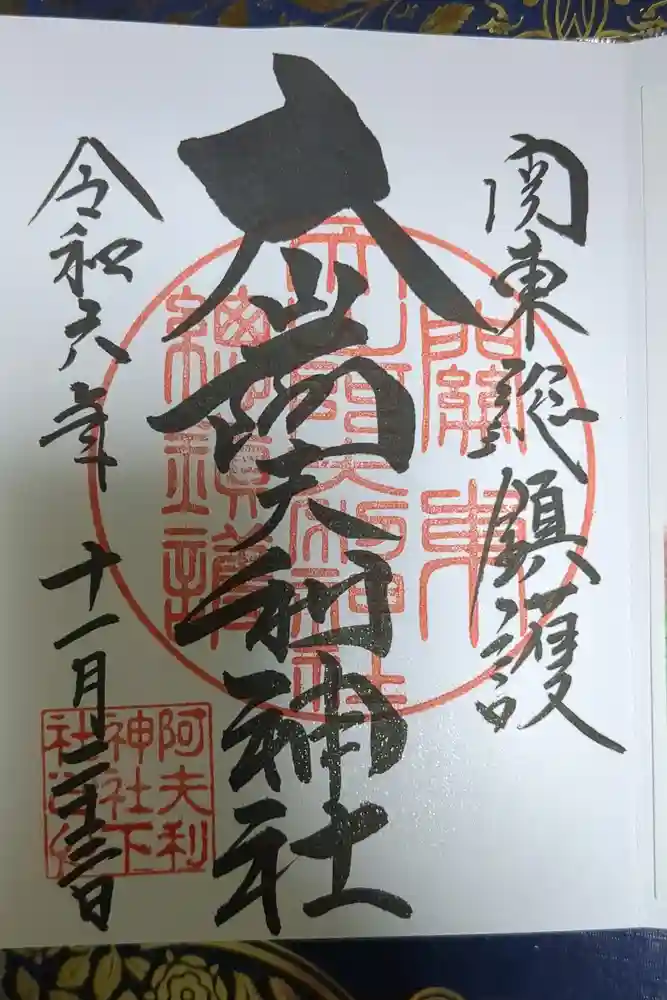 関東総鎮護
大山阿夫利神社
令和六年
十一月二十三日
關東
大山阿夫利神社
總鎮護
阿夫利
神社下
社